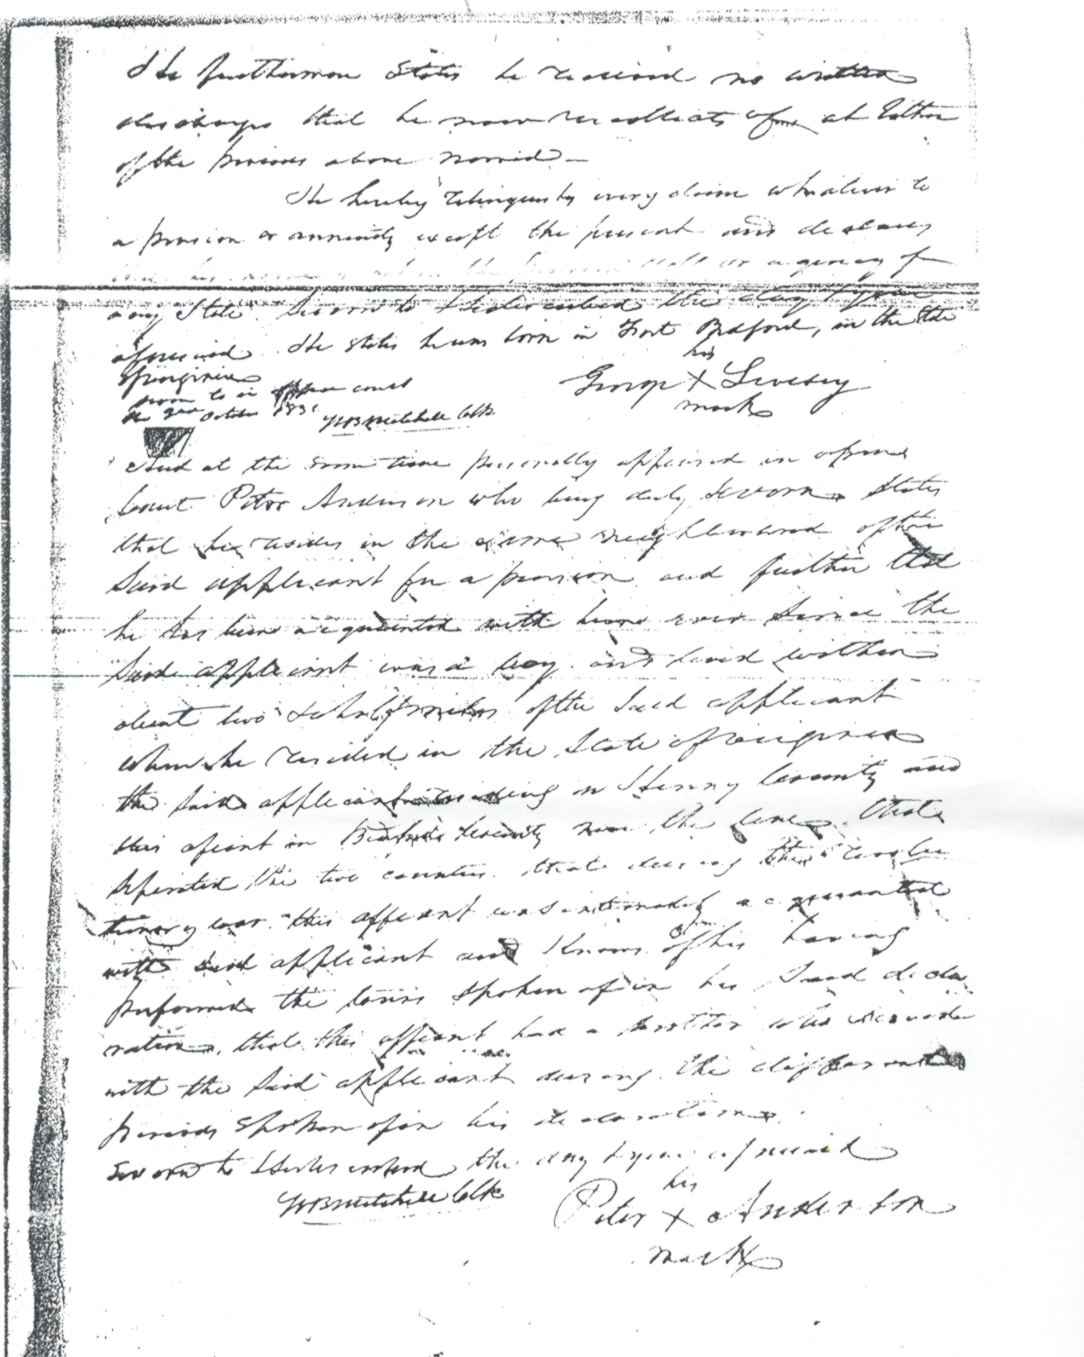 He furthermore States he received no written
discharge that he now recollects of at Either
of the periods above named —
He hereby relinquishes every claim whatever to
a pension or annuity except the present and declares
or agency of
any State Sworn to & subscribed the day & year
aforesaid. He states he was born in Fort Bedford, in the State
of virginia
sworn to in open court
the 2nd October 183
his
George X Livesey
mark
W B Mitchell Clk
And at the same time personally appeared in open
Court Peter Anderson who being duly Sworn States
that he resides in the same neighborhood of the
Said applicant for a pension and further that
he has been acquainted with him ever Since the
Said applicant was a boy and lived within
about two & a half miles of the Said applicant
when he resided in the State of virginia
the Said applicant residing in Henry County and
this afiant in County near the line that
Seperated the two counties that during the revolu
tionary war this affiant was intimately acquainted
with said applicant and Knows of his having
performed the tours spoken of in his Said decla
ration, that this affiant had a brother who
with the Said applicant during the different
periods Spoken of in his declaration.
Sworn to & subscribed the day & year aforesaid
W B Mitchell Clk
his
Peter X Anderson
mark